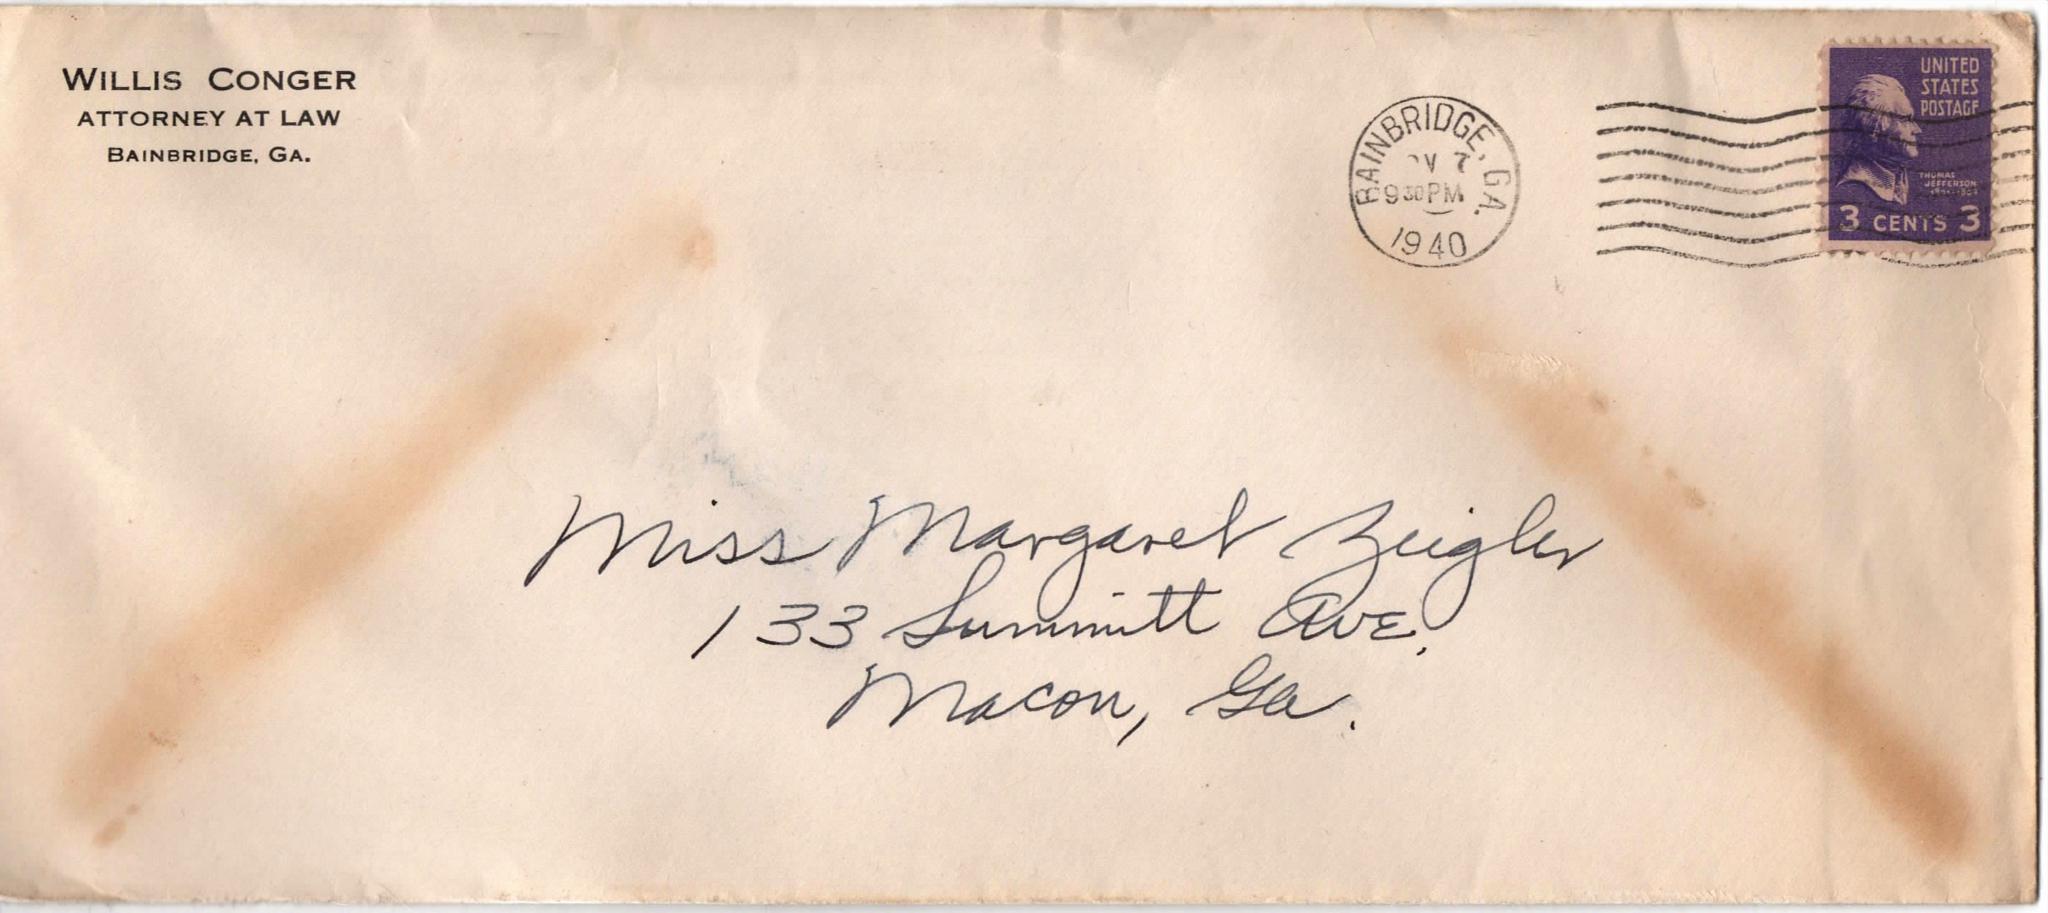 WILLIS CONGER
ATTORNEY AT LAW
BAINBRIDGE, GA.
BAINBRIDGE, GA.
7
9 30 PM
1940
UNITED
STATES
POSTAGE
THOMAS
JEFFERSON
3 CENTS 3
Miss Margaret Zeigler
133 Summitt Ave.
Macon, Ga.